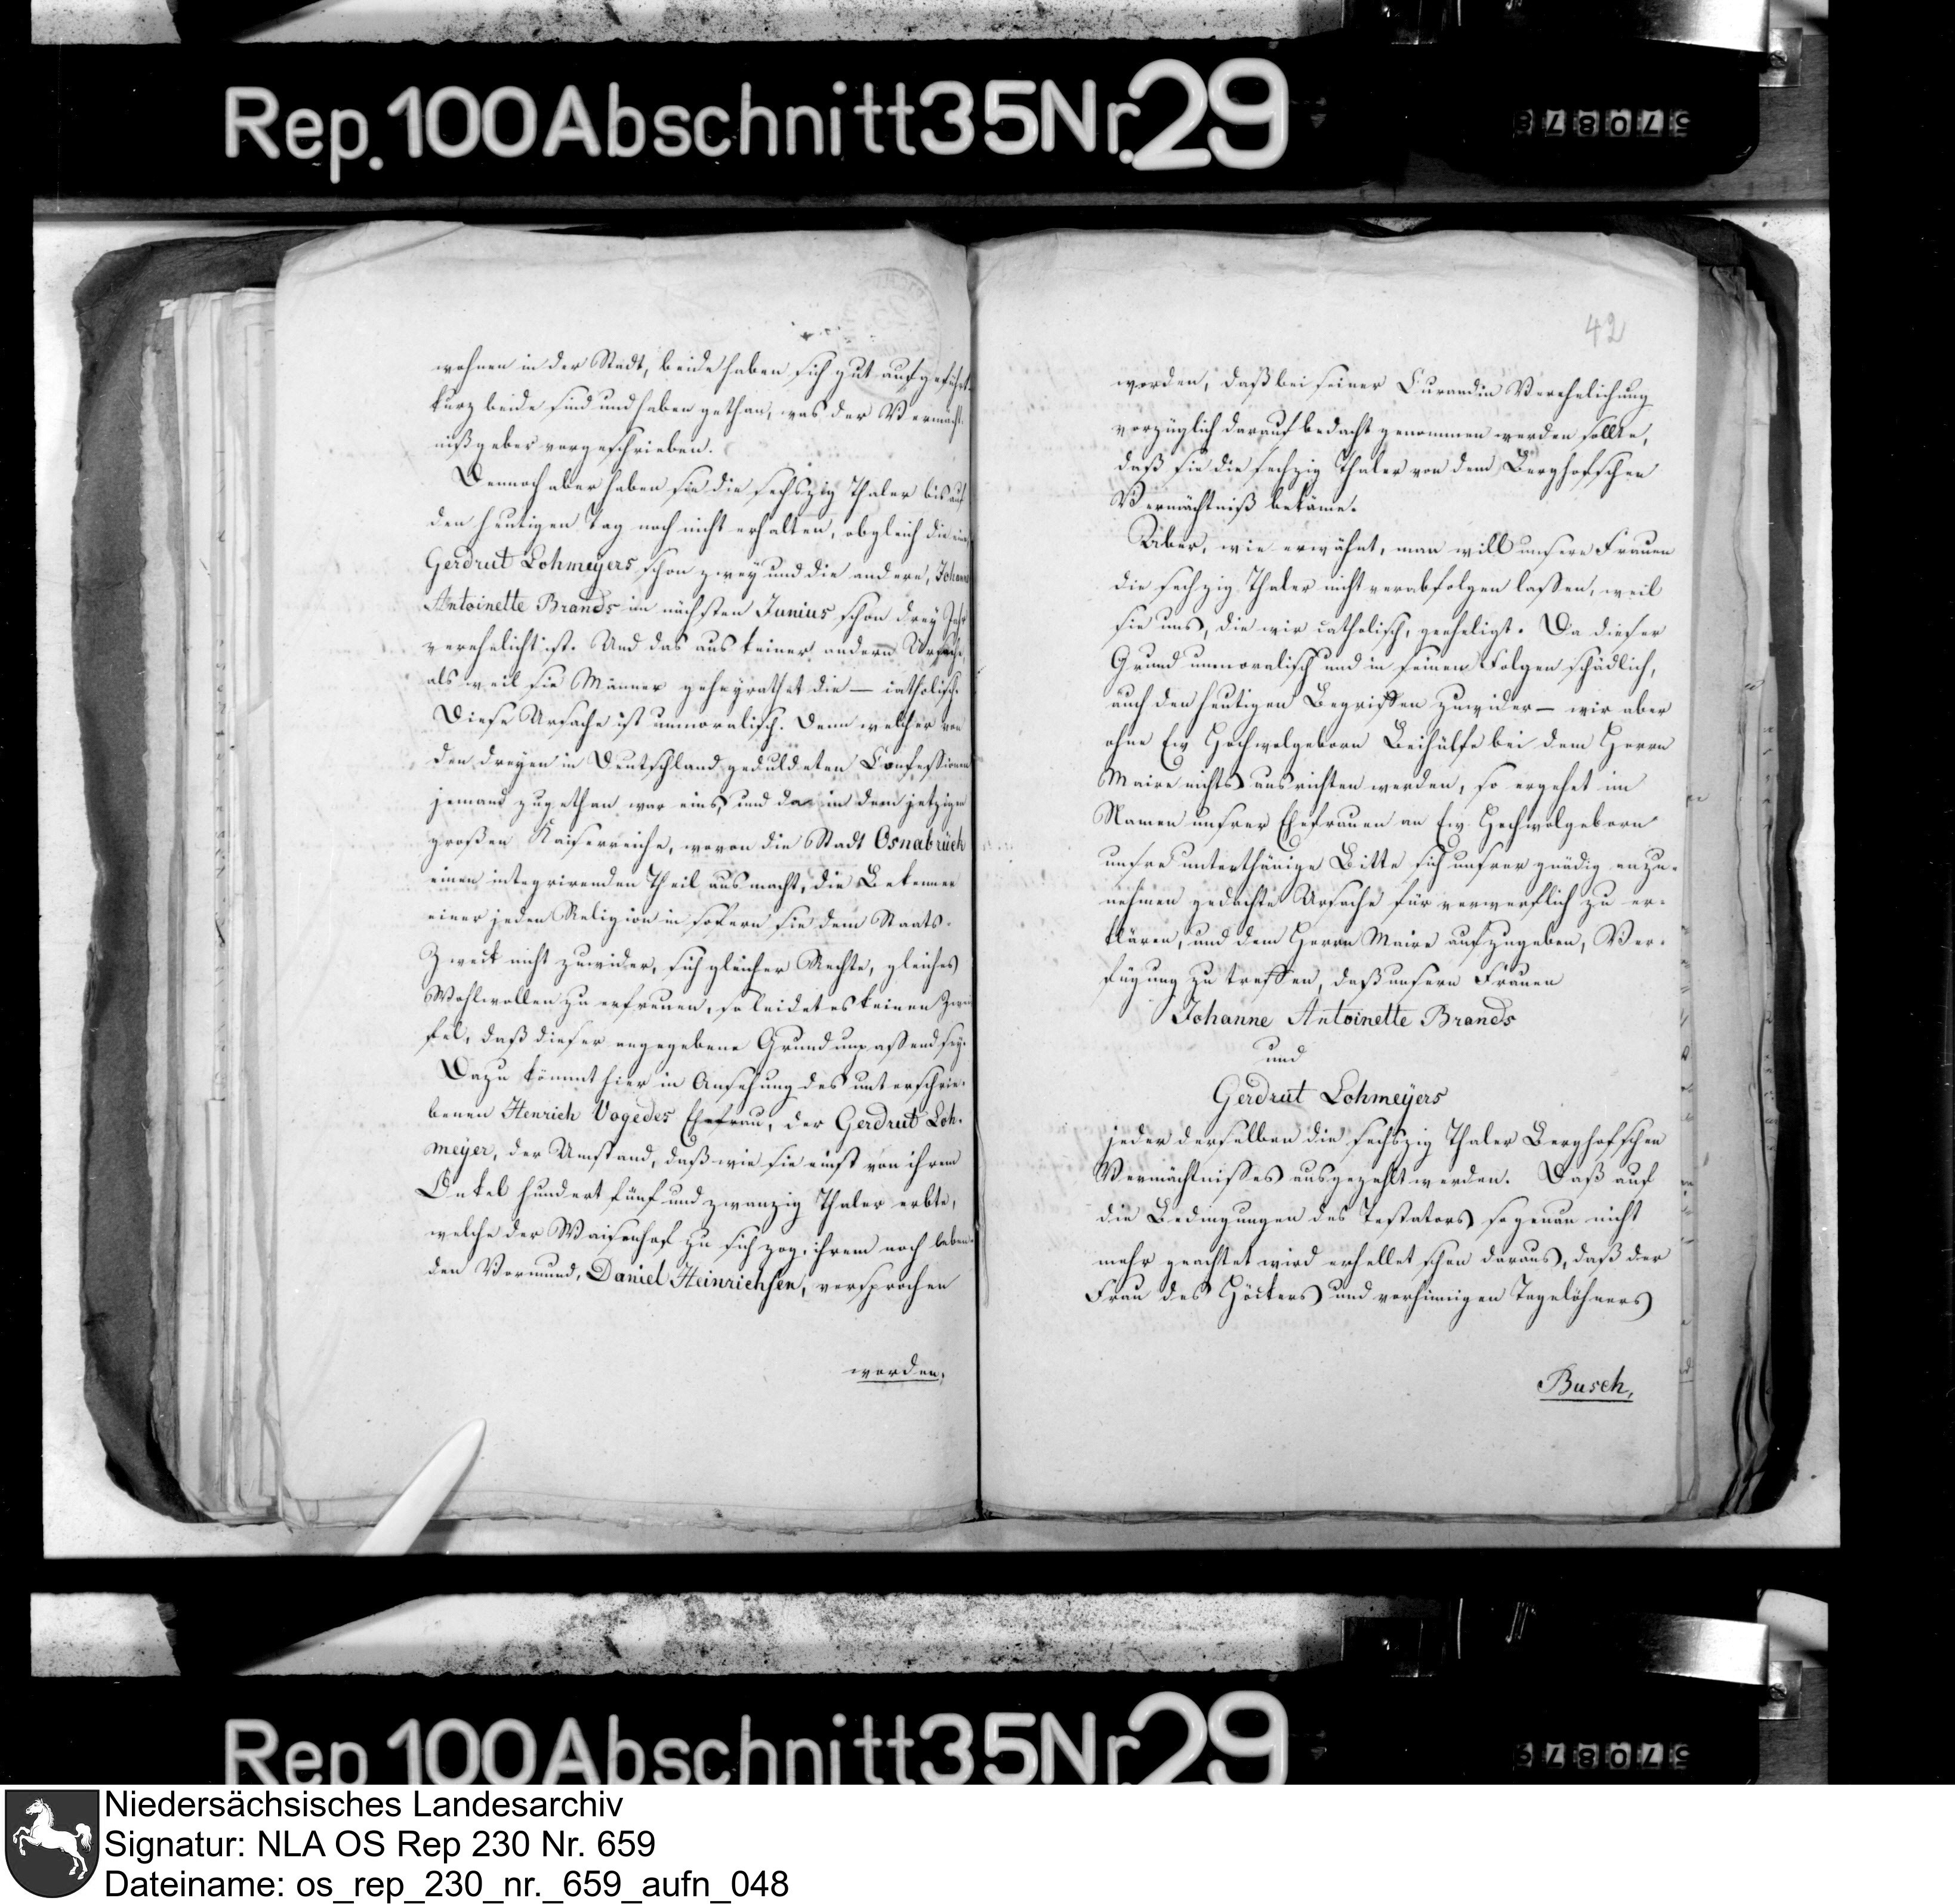 Rep. 100 Abschnitt 35 Nr. 29
570878
wohnen in der Stadt, beide haben sich gut aufgeführt
kurz beide sind und haben gethan, was der Vermächt-
nißgeber vorgeschrieben.
Dennoch aber haben sie die sechszig Thaler bis auf
den heutigen Tag noch nicht erhalten, obgleich die eine,
Gerdrut Lohmeyers schon zwey und die andere, Johanne
Antoinette Brands im nächsten Junius schon drey Jahr
verehelicht ist. Und das aus keiner andern Ursache,
als weil sie Männer geheyrathet die — catholisch.
Diese Ursache ist unmoralisch. Denn welcher von
den dreyen in Deutschland geduldeten Confessionen
jemand zugethan war eins, und da in dem jetzigen
großen Kaiserreiche, wovon die Stadt Osnabrück
einen integrirenden Theil ausmacht, die Bekenner
einer jeden Religion in sofern sie dem Staats-
Zweck nicht zuwider, sich gleicher Rechte, gleiches
Wohlwollen zu erfreuen, so leidet es keinen Zwei
fel, daß dieser angegebene Grund unpassend sey.
Dazu kömmt hier in Ansehung des unterschrie-
benen Henrich Vogedes Ehefrau, der Gerdrut Loh-
meyer, der Umstand, daß wie sie einst von ihrem
Onkel hundert fünf und zwanzig Thaler erbte,
welche der Waisenhof zu sich zog, ihrem noch leben-
den Vormund, Daniel Heinrichsen, versprochen
worden,
42
worden, daß bei seiner Curandin Verehelichung
vorzüglich darauf bedacht genommen werden sollte,
daß sie die sechzig Thaler von dem Berghofschen
Vermächtniß bekäme.
Aber, wie erwähnt, man will unsern Frauen
die sechzig Thaler nicht verabfolgen lassen, weil
sie uns, die wir catholisch, geeheligt. Da dieser
Grund unmoralisch und in seinen Folgen schädlich,
auch den heutigen Begriffen zuwider — wir aber
ohne Ew Hochwolgeborn Beihülfe bei dem Herrn
Maire nichts ausrichten werden, so ergehet im
Namen unsrer Ehefrauen an Ew Hochwolgeborn
unsre unterthänige Bitte sich unsrer gnädig anzu-
nehmen gedachte Ursache für verwerflich zu er-
klären, und dem Herrn Maire aufzugeben, Ver-
fügung zu treffen, daß unsern Frauen
Johanne Antoinette Brands
und
Gerdrut Lohmeyers
jeder derselben die sechszig Thaler Berghofschen
Vermächtnisses ausgezahlt werden. Daß auf
die Bedingungen des Testators so genau nicht
mehr geachtet wird erhellet schon daraus, daß der
Frau des Höckers und vorhinnigen Tagelöhners
Busch,
Rep 100 Abschnitt 35 Nr 29
570879
Niedersächsisches Landesarchiv
Signatur: NLA OS Rep 230 Nr. 659
Dateiname: os_rep_230_nr._659_aufn_048